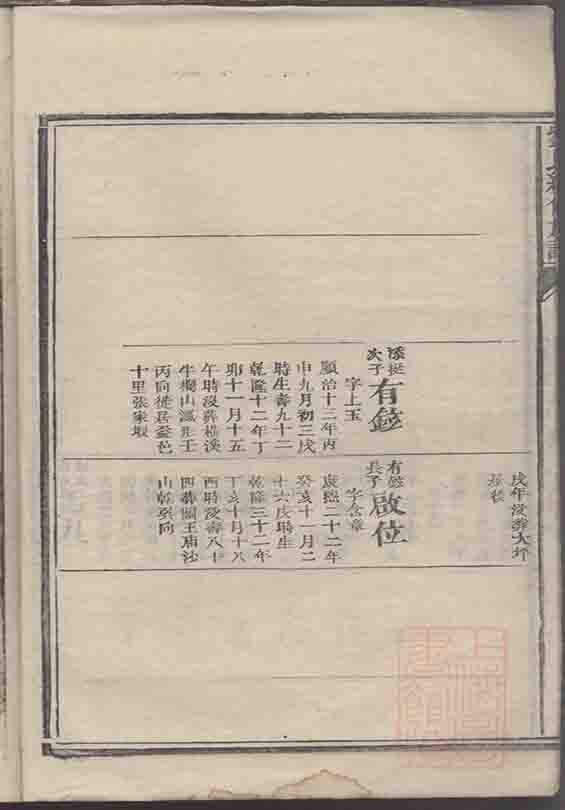 戌年没葬大坪
挺
次子
有
字上玉
順治十三年丙
申九月初三戌
時生壽九十二
乾隆十二年丁
卯十一月十五
午時没葬溪
牛欄山形壬
丙向徙居益邑
十里張家塅
有
長子
啟位
字含章
康熙二十二年
癸亥十一月二
十六戌時生
乾隆三十二年
丁亥十月十八
酉時没壽八十
四葬關王廟沙
山乾巽向